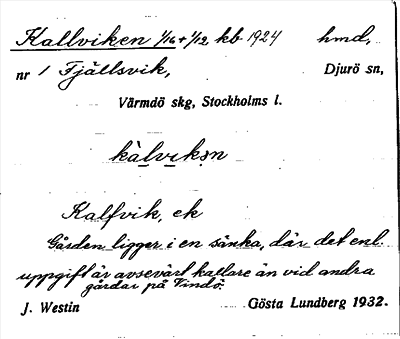 Kallviken 1/16+1/12 kb 1924 hmd,
nr 1 Fjällsvik, Djurö sn,
Värmdö skg, Stockholms l.
kàlvikən
Kalfvik, ek
Gården ligger i en sänka, där det enl.
uppgift är avsevärt kallare än vid andra
gårdar på Vindö.
J. Westin Gösta Lundberg 1932.